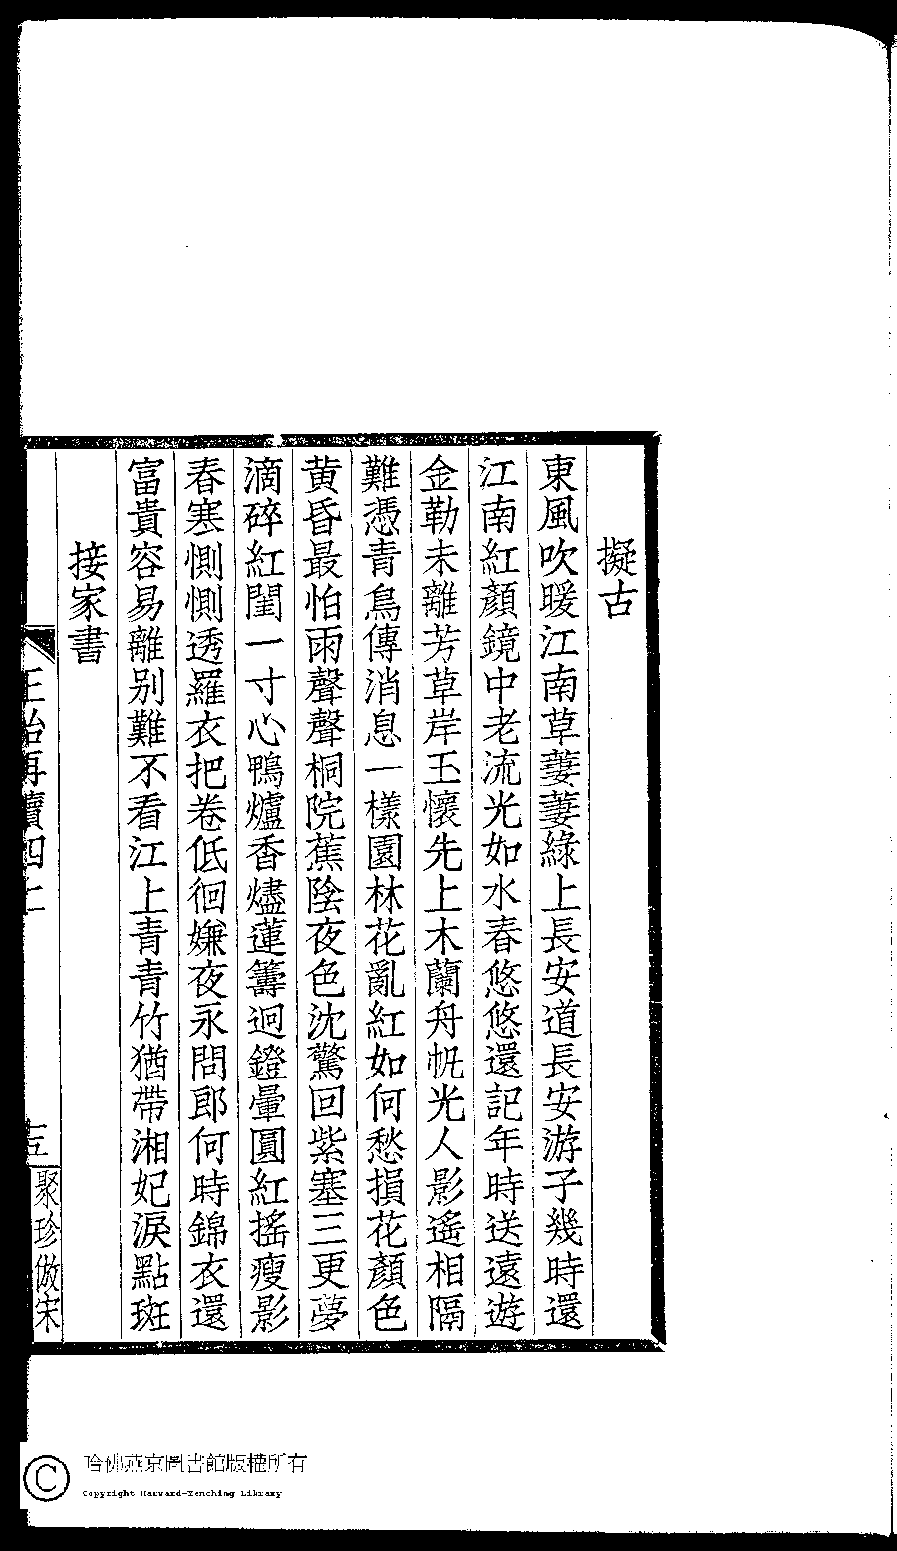 擬古
東風吹暖江南草萋萋綠上長安道長安游子幾時還
江南紅顏鏡中老流光如水春悠悠還記年時送遠遊
金勒未離芳草岸玉懷先上木蘭舟帆光人影遙相隔
難憑青鳥傳消息一樣園林花亂紅如何愁損花顏色
黃昏最怕雨聲聲桐院蕉陰夜色沈驚回紫塞三更夢
滴碎紅閨一寸心鴨爐香燼蓮籌迥鐙暈圓紅搖瘦影
春寒惻惻透羅衣把卷低徊嫌夜永問郎何時錦衣還
富貴容易離別難不看江上青青竹猶帶湘妃淚點斑
接家書
再續四上
聚珍倣宋
哈佛燕京圖書館版權所有
Copyright Harvard-Yenching Library